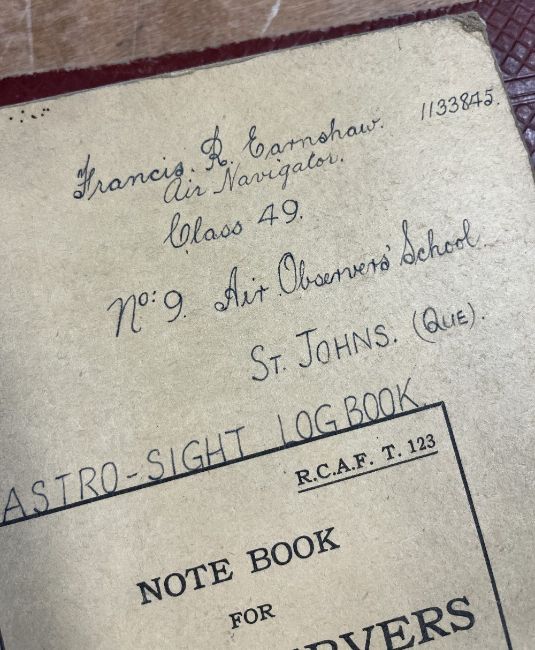 1133845.
Francis. R. Earnshaw.
Air Navigator.
Class 49.
No: 9. Air Observers' School.
ST. JOHNS. (QUE).
ASTRO-SIGHT LOG BOOK.
R.C.A.F. T. 123
NOTE BOOK
FOR